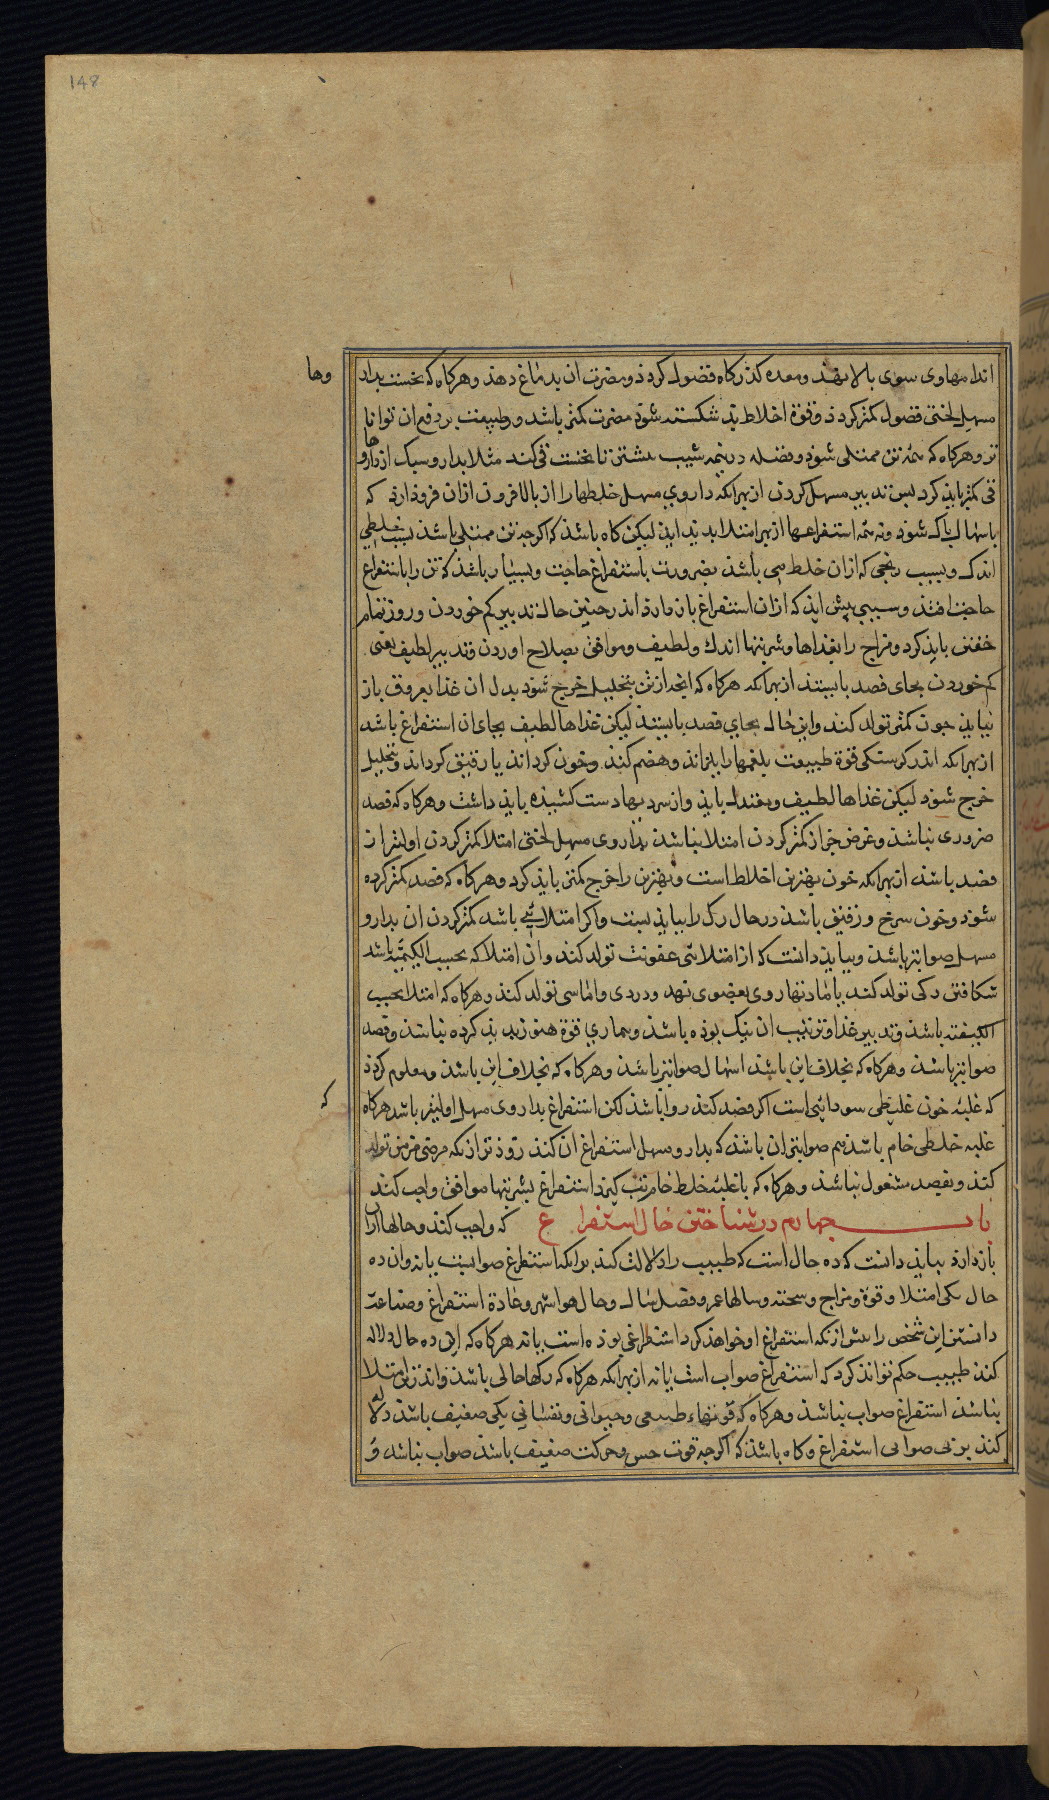 148
اندامهاوی سوی بالا نهند ومعده کذرکاه فضول کردد ومضرت ان بدماغ دهد وهرکاه که نخست بدارو
وها
مسهل لختی فضول کمتر کرده وقوة اخلاط بد شکسته شود مضرت کمتر باشد وطبیعت بر دفع ان تواناتر
وهرکاه که همه تن ممتلی شود وفضله در نیمه شیب تا نخست قی کند مثلا بدارو سبک از داروها
قی کمتر باید کرد پس تدبیر مسهل کردن از بهر انکه داروی مسهل خلطها را از بالا فروتر از ان فرود ارد که
باسهال پاک شود ونه همه استفراغها از بهر امتلا بدید اید لیکن کاه باشد که اکرچه تن ممتلی باشد بسبب خلطی
اندک وبسبب رنجی که از ان خلط می باشد بضرورت باستفراغ حاجت وبسیار باشد که تن را باستفراغ
حاجت افتد وسببی پیش اید که از ان استفراغ باز دارد اندر چنین حال تدبیر کم خوردن وروز تمام
خفتن باید کرد ومزاج را بغذاها وشربتها اندک ولطیف وموافق بصلاح اوردن وتدبیر لطیف یعنی
کم خوردن بجای فصد بایستد از بهر انکه هرکاه که انچه از تن بتحلیل خرج شود بدل ان غذا بعروق باز
نیاید خون کمتر تولد کند واین حال بجای فصد بایستد لیکن غذاها لطیف بجای ان استفراغ باشد
از بهر انکه اندر کرسنکی قوة طبیعت بلغمها را بپزاند وهضم کند وخون کرداند یا رقیق کرداند وبتحلیل
خرج شود لیکن غذاها لطیف ومعتدل باید واز سردیها دست کشیده باید داشت وهرکاه که فصد
ضروری نباشد وغرض جز از کمتر کردن امتلا نباشد بداروی مسهل لختی امتلا کمتر کردن اولیتر از
فصد باشد از بهر انکه خون بهترین اخلاط است وبهترین را خرج کمتر باید کرد وهرکاه که فصد کمتر کرده
شود وخون سرخ ورقیق باشد در حال رک را بباید بست واکر امتلائی باشد کمتر کردن ان بدارو
مسهل صوابتر باشد وبباید دانست که از امتلائی عفونت تولد کند وان امتلا که بحسب الکمیة باشد
شکافتن رکی تولد کند یا مادتها روی بعضوی نهد ودردی واماسی تولد کند وهرکاه که امتلا بحسب
الکیفیة باشد وتدبیر غذا وترتیب ان نیک بوده باشد وبیماری قوة هنوز پدید نکرده نباشد وفصد
صوابتر باشد وهرکاه که بخلاف این باشد اسهال صوابتر باشد وهرکاه که بخلاف این باشد ومعلوم کردد
که
که غلبه خون غلیظی سودائی است اکر فصد کنند روا باشد لکن استفراغ بداروی مسهل اولیتر باشد هرکاه
غلبه خلطی خام باشد هم صوابتر ان باشد که بدارو مسهل استفراغ ان کنند زودتر از انکه مرضی مزمن تولد
کند وبفصد مشغول نباشد وهرکاه که با غلبه خلط خام تب کیرد استفراغ بشربتها موافق واجب کند
باب چهارم در شناختن حال استفراغ که واجب کند وحالها که از ان
باز دارد بباید دانست که ده حال است که طبیب را دلالت کند بر انکه استفراغ صوابست یا نه وان ده
حال یکی امتلا وقوة ومزاج وسحنه وسالها عمر وفصل سال وحال هوا شهر وعادة استفراغ وصناعت
دانستن این شخص را پیش از انکه استفراغ او خواهند کرد استفراغی بوده است یا نه هرکاه که این ده حال دلاله
کند طبیب حکم تواند کرد که استفراغ صواب است یا نه از بهر انکه هرکاه که رکها خالی باشد واندر وی امتلا
نباشد استفراغ صواب نباشد وهرکاه که قوتهاء طبیعی وحیوانی ونفسانی یکی ضعیف باشد دلاله
کند بر بی صوابی استفراغ وکاه باشد که اکرچه قوت حس وحرکت ضعیف باشد صواب نباشد و